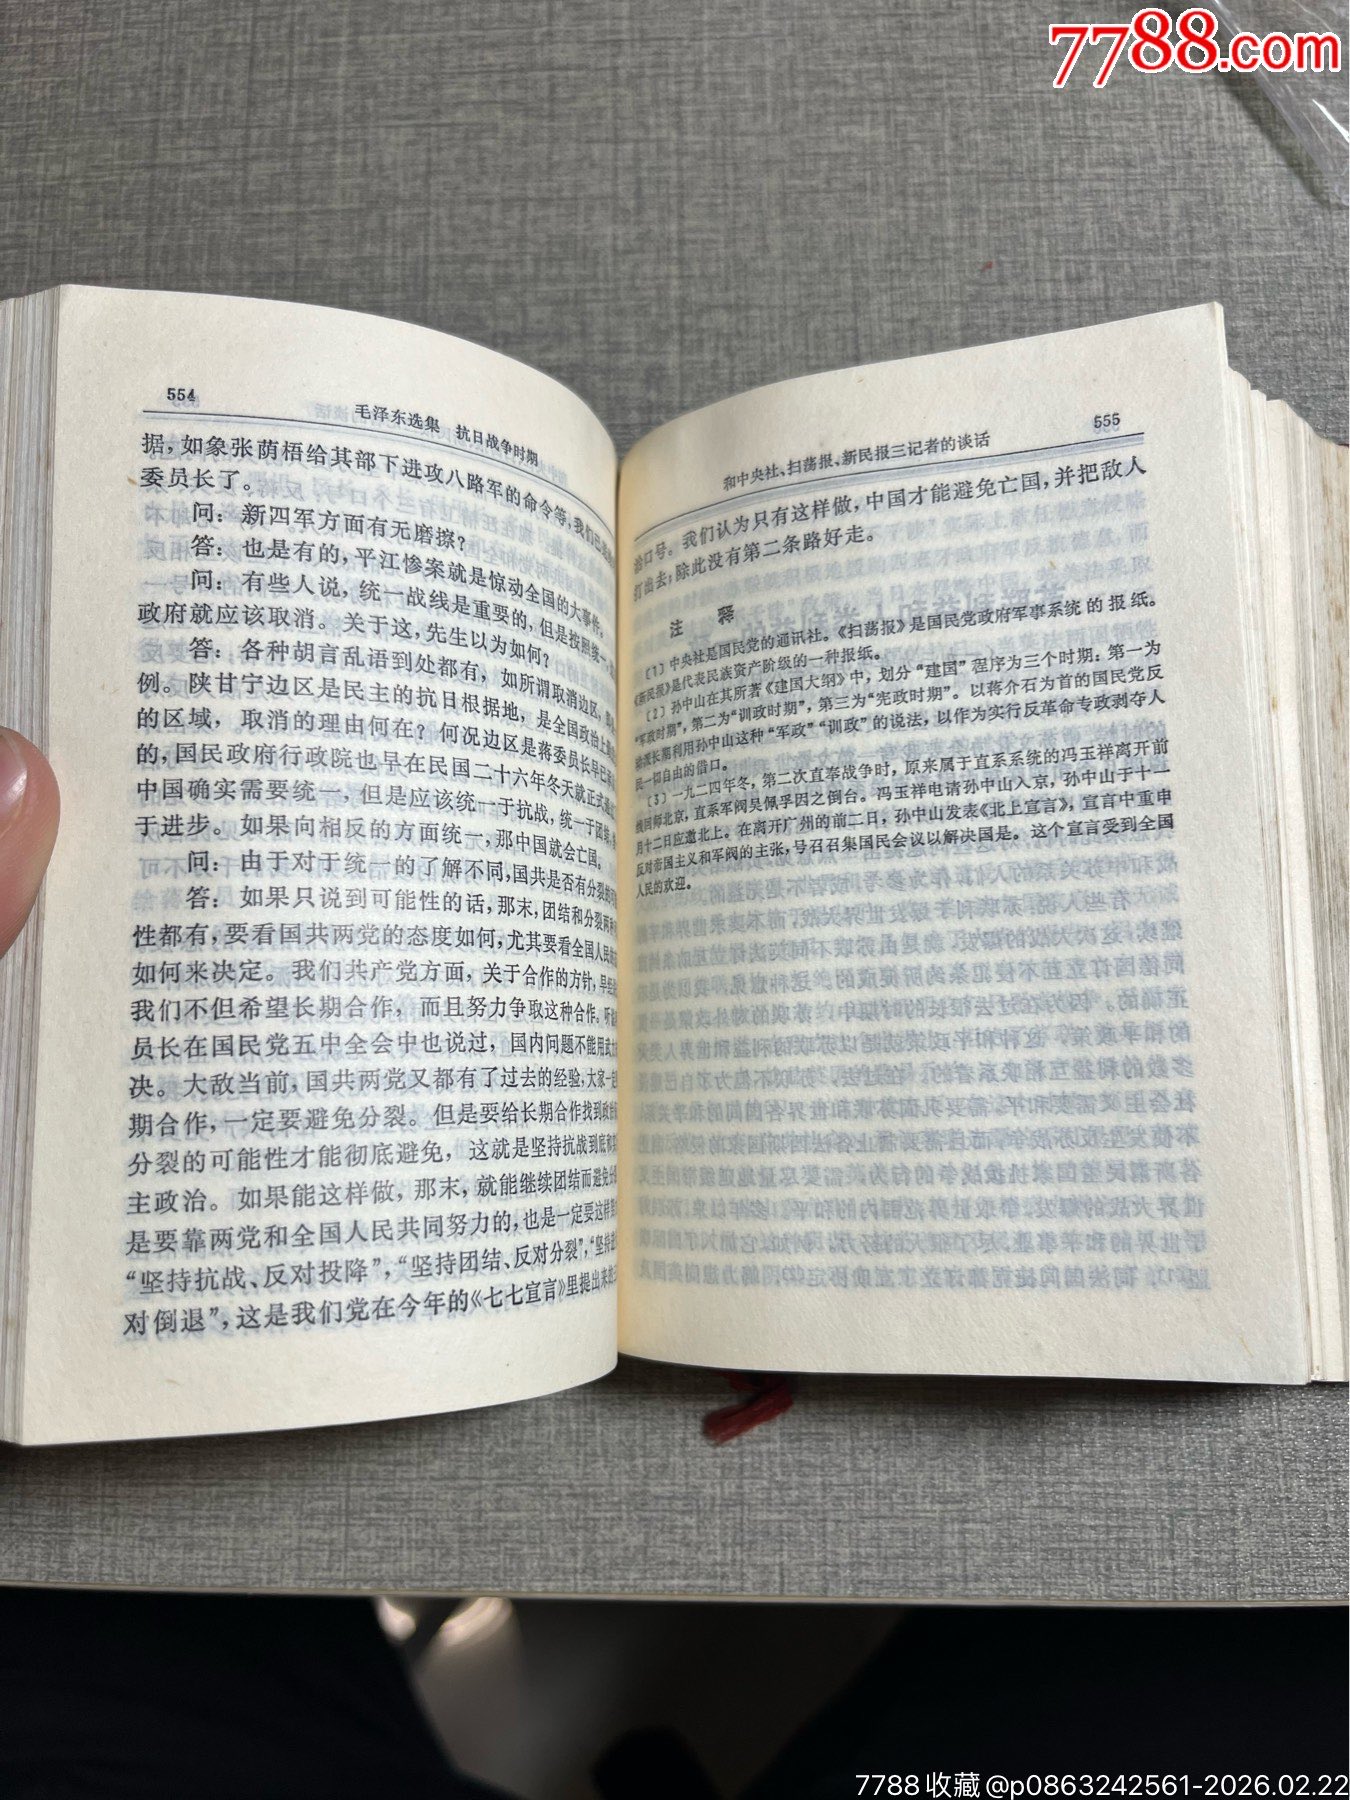 7788.com
554
毛泽东选集 抗日战争时期
据，如象张荫梧给其部下进攻八路军的命令等，我们已
委员长了。
问：新四军方面有无磨擦？
答：也是有的，平江惨案就是惊动全国的大事件。
问：有些人说，统一战线是重要的，但是按照统一
政府就应该取消。关于这，先生以为如何？
答：各种胡言乱语到处都有，如所谓取消边区，
例。陕甘宁边区是民主的抗日根据地，是全国政治上
的区域，取消的理由何在？何况边区是蒋委员长早已
的，国民政府行政院也早在民国二十六年冬天就正式
中国确实需要统一，但是应该统一于抗战，统一于团结，
于进步。如果向相反的方面统一，那中国就会亡国。
问：由于对于统一的了解不同，国共是否有分裂的
答：如果只说到可能性的话，那末，团结和分裂两种
性都有，要看国共两党的态度如何，尤其要看全国人民的
如何来决定。我们共产党方面，关于合作的方针，早
我们不但希望长期合作，而且努力争取这种合作。听
员长在国民党五中全会中也说过，国内问题不能用武力
决。大敌当前，国共两党又都有了过去的经验，大家一
期合作，一定要避免分裂。但是要给长期合作找到政治
分裂的可能性才能彻底避免，这就是坚持抗战到底和
主政治。如果能这样做，那末，就能继续团结而避免分
是要靠两党和全国人民共同努力的，也是一定要这样
“坚持抗战、反对投降”，“坚持团结、反对分裂”，“坚持
对倒退”，这是我们党在今年的《七七宣言》里提出来的
555
和中央社、扫荡报、新民报三记者的谈话
治口号。我们认为只有这样做，中国才能避免亡国，并把敌人
打出去；除此没有第二条路好走。
注 释
〔1〕中央社是国民党的通讯社。《扫荡报》是国民党政府军事系统的报纸。
《新民报》是代表民族资产阶级的一种报纸。
〔2〕孙中山在其所著《建国大纲》中，划分“建国”程序为三个时期：第一为
“军政时期”，第二为“训政时期”，第三为“宪政时期”。以蒋介石为首的国民党反
动派长期利用孙中山这种“军政”“训政”的说法，以作为实行反革命专政剥夺人
民一切自由的借口。
〔3〕一九二四年冬，第二次直奉战争时，原来属于直系系统的冯玉祥离开前
线回师北京，直系军阀吴佩孚因之倒台。冯玉祥电请孙中山入京，孙中山于十一
月十二日应邀北上。在离开广州的前二日，孙中山发表《北上宣言》，宣言中重申
反对帝国主义和军阀的主张，号召召集国民会议以解决国是。这个宣言受到全国
人民的欢迎。
7788收藏@p0863242561-2026.02.22